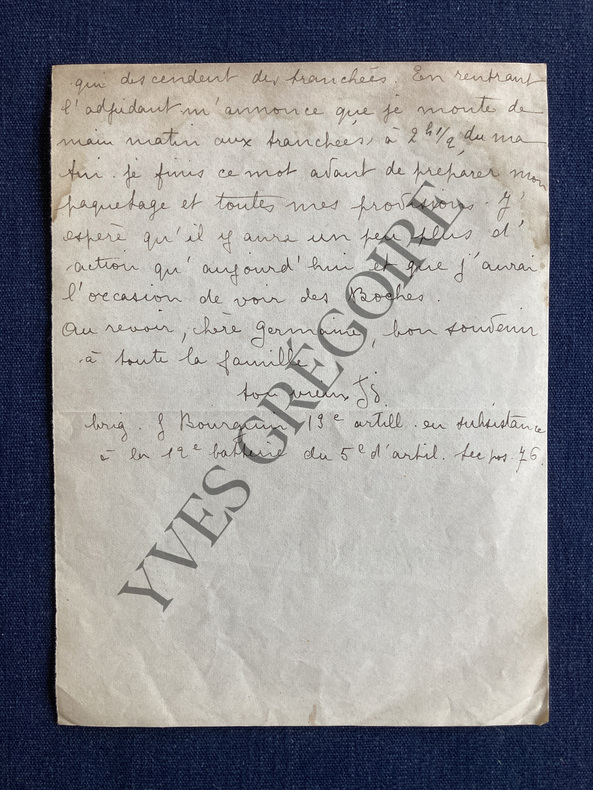 qui descendent des tranchées. En rentrant
l'adjudant m'annonce que je monte de
main matin aux tranchées, à 2 h 1/2 du ma
tin. je finis ce mot avant de préparer mon
paquetage et toutes mes provisions. J'
espère qu'il y aura un peu plus d'
action qu'aujourd'hui et que j'aurai
l'occasion de voir des Boches.
Au revoir, chère Germaine, bon souvenir
à toute la famille
ton vieux
brig. J Bourguin 13e artill. en subsistance
à la 12e batterie du 5e d'artil. Sec pos. 76.
YVES GRÉGOIRE